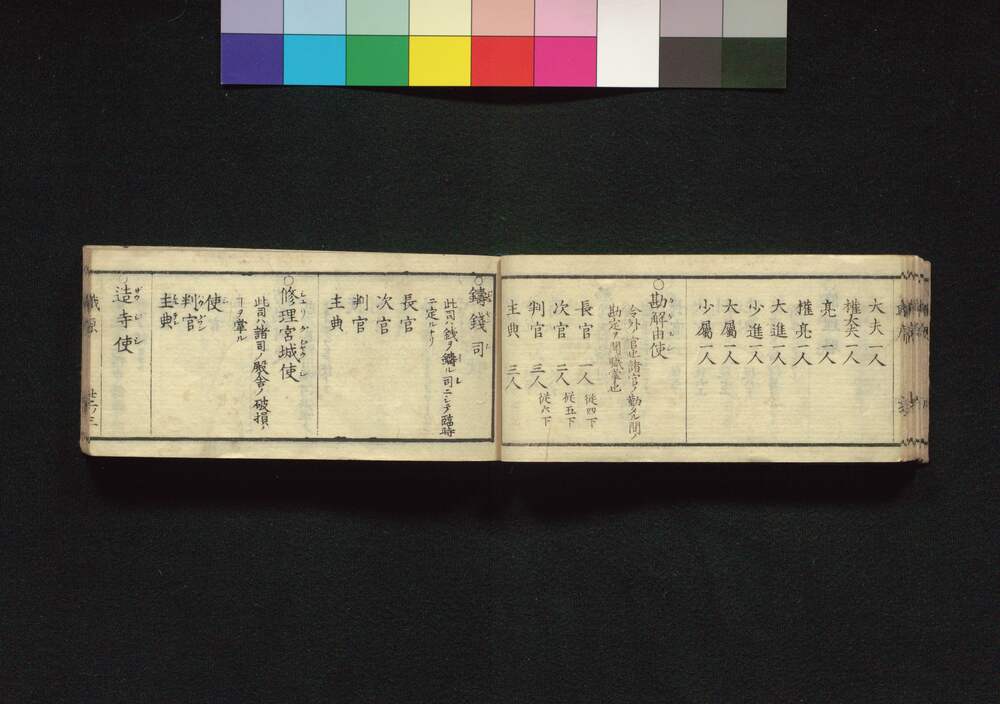 大夫一人
權大夫一人
亮一人
權亮一人
大進一人
少進一人
大屬一人
少屬一人
○勘解由使
令外ノ官也諸官ノ勤タル間ノ
勘定ヲ聞職掌也
長官　一人　從四下
次官　二人　從五下
判官　三人　從六下
主典　三人
○鑄錢司
此司ハ錢ヲ鑄ル司ニシテ臨時
ニ定ルナリ
長官
次官
判官
主典
○修理宮城使
此司ハ諸司ノ殿舎ノ破損ノ
ヿヲ掌ル
使
判官
主典
○造寺使